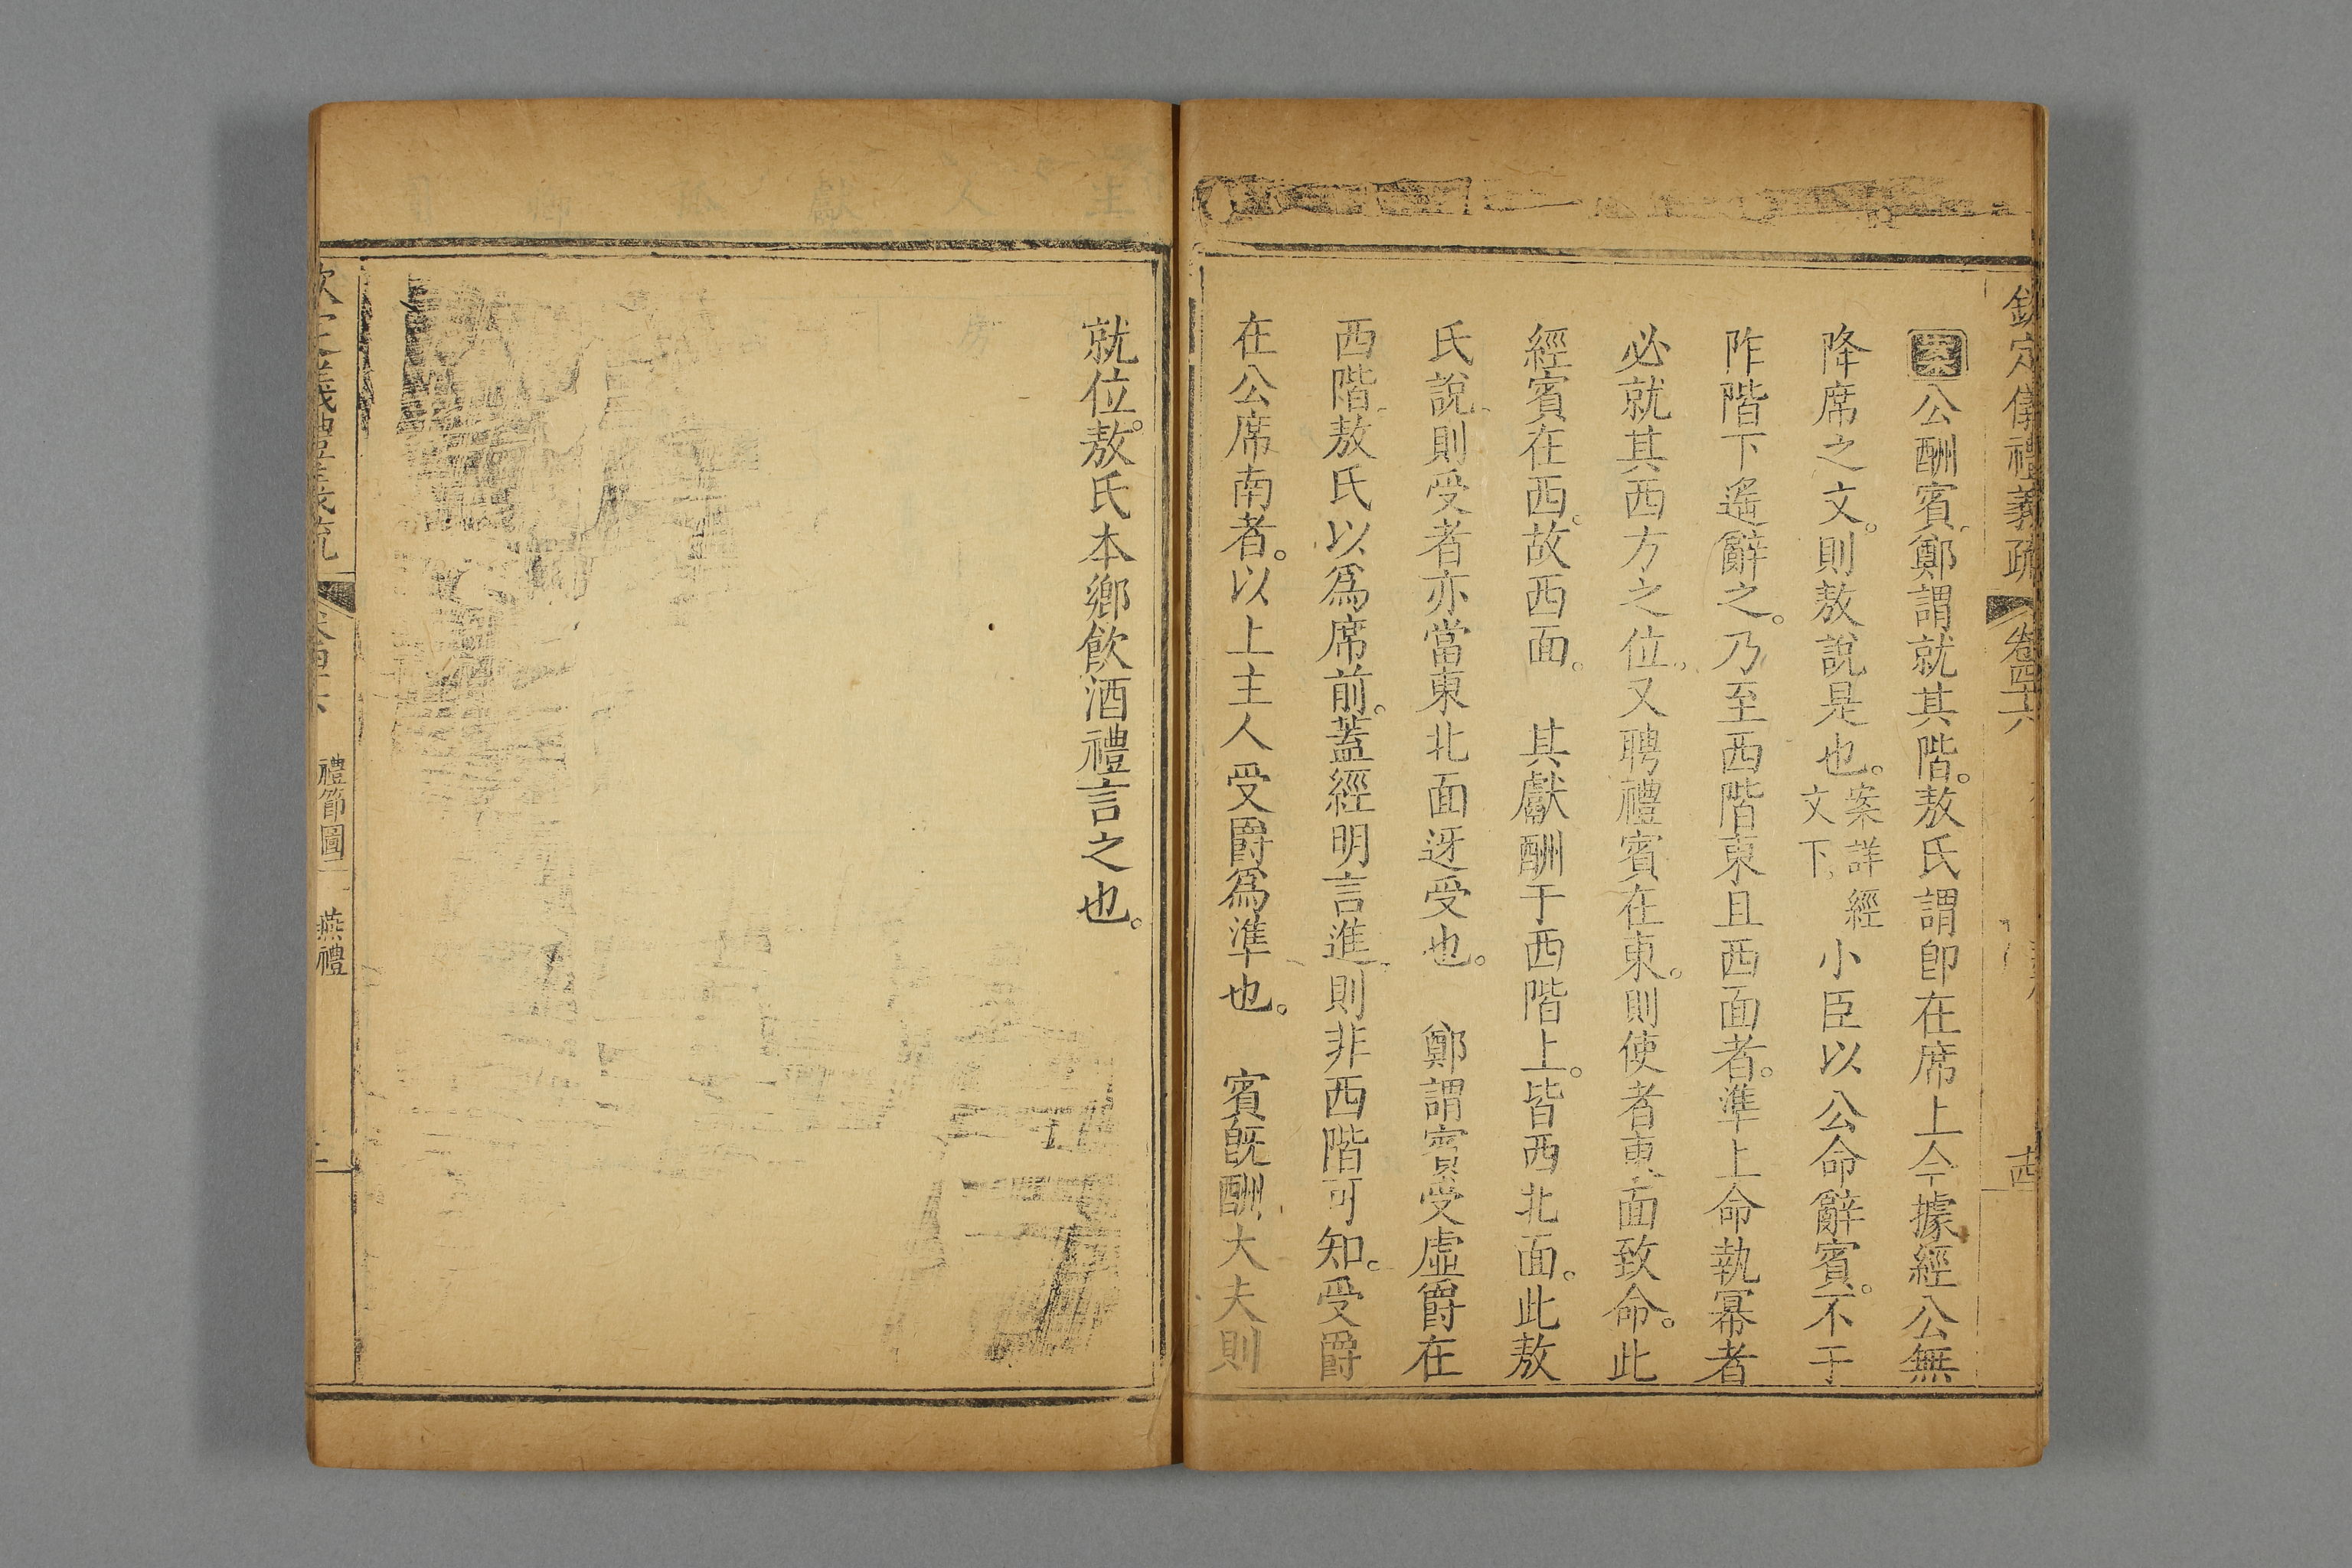 欽定儀禮義疏 卷四十六 十四
案公酬賓鄭謂就其階。敖氏謂卽在席上今據經公無
降席之文。則敖說是也。案詳經文下小臣以公命辭賓。不于
阼階下遙辭之。乃至西階東且西面者。準上命執冪者
必就其西方之位。又聘禮賓在東。則使者東面致命。此
經賓在西。故西面。 其獻酬于西階上。皆西北面。此敖
氏說。則受者亦當東北面迓受也。 鄭謂賓受虛爵在
西階敖氏以爲席前。蓋經明言進則非西階可知。受爵
在公席南者。以上主人受爵爲準也。 賓旣酬大夫則
就位。敖氏本鄉飮酒禮言之也。
禮節圖二 燕禮